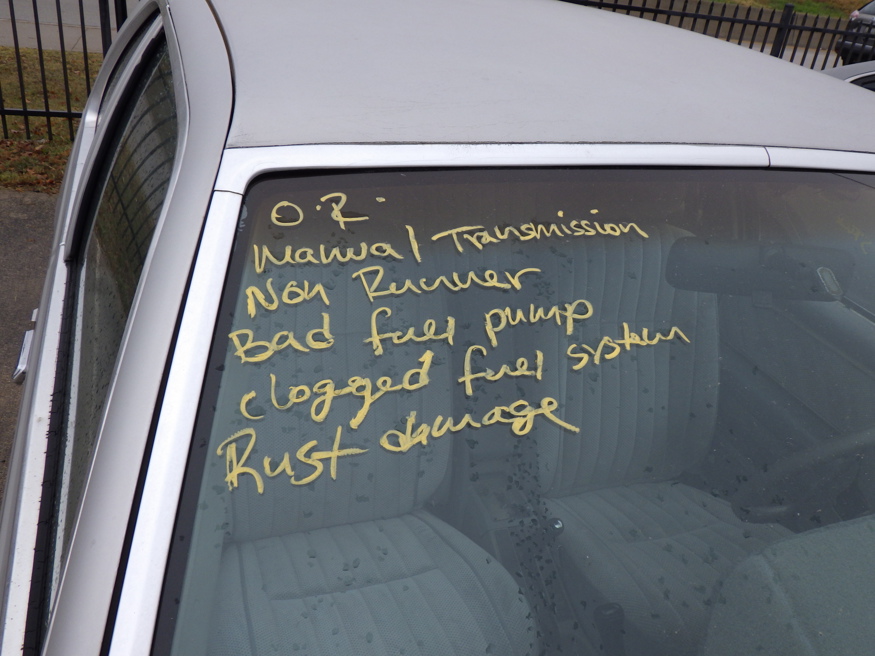 O.R.
Manual Transmission
Non Runner
Bad fuel pump
clogged fuel system
Rust damage